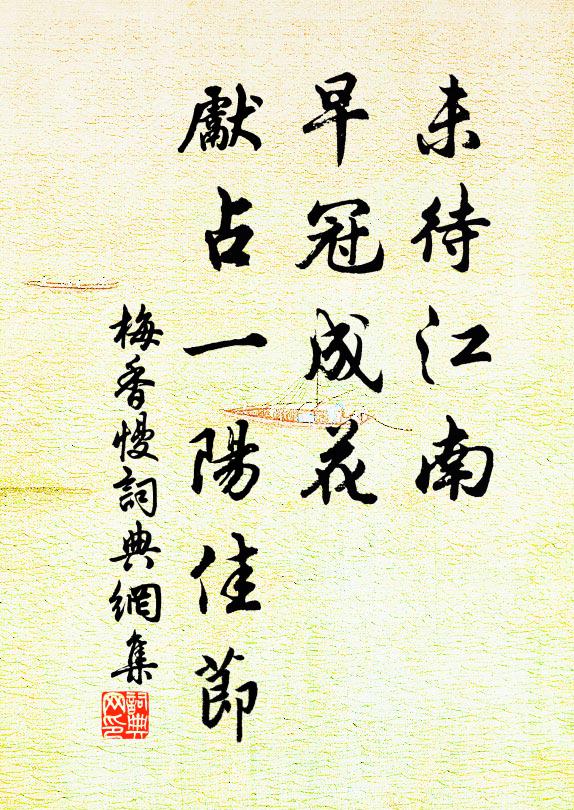 未待江南
早冠成花
獻占一陽佳節
梅香慢詞典網集
詞典网印